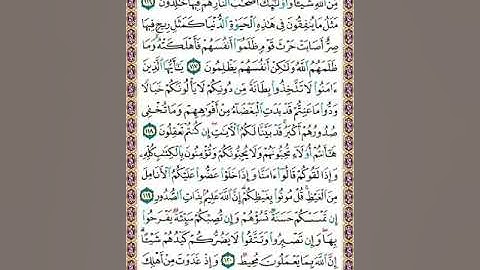 مِنَ اللَّهِ شَيْئًا وَأُولَٰئِكَ أَصْحَابُ النَّارِ هُمْ فِيهَا خَالِدُونَ ١١٦
مَثَلُ مَا يُنفِقُونَ فِي هَٰذِهِ الْحَيَوٰةِ الدُّنْيَا كَمَثَلِ رِيحٍ فِيهَا
صِرٌّ أَصَابَتْ حَرْثَ قَوْمٍ ظَلَمُوا أَنفُسَهُمْ فَأَهْلَكَتْهُ وَمَا
ظَلَمَهُمُ اللَّهُ وَلَٰكِنْ أَنفُسَهُمْ يَظْلِمُونَ ١١٧ يَٰأَيُّهَا الَّذِينَ
ءَامَنُوا لَا تَتَّخِذُوا بِطَانَةً مِّن دُونِكُمْ لَا يَأْلُونَكُمْ خَبَالًا
وَدُّوا مَا عَنِتُّمْ قَدْ بَدَتِ الْبَغْضَاءُ مِنْ أَفْوَٰهِهِمْ وَمَا تُخْفِي
صُدُورُهُمْ أَكْبَرُ قَدْ بَيَّنَّا لَكُمُ الْءَايَٰتِ إِن كُنتُمْ تَعْقِلُونَ ١١٨
هَٰأَنتُمْ أُولَاءِ تُحِبُّونَهُمْ وَلَا يُحِبُّونَكُمْ وَتُؤْمِنُونَ بِالْكِتَٰبِ كُلِّهِ
وَإِذَا لَقُوكُمْ قَالُوا ءَامَنَّا وَإِذَا خَلَوْا عَضُّوا عَلَيْكُمُ الْأَنَامِلَ
مِنَ الْغَيْظِ قُلْ مُوتُوا بِغَيْظِكُمْ إِنَّ اللَّهَ عَلِيمٌ بِذَاتِ الصُّدُورِ ١١٩
إِن تَمْسَسْكُمْ حَسَنَةٌ تَسُؤْهُمْ وَإِن تُصِبْكُمْ سَيِّئَةٌ يَفْرَحُوا
بِهَا وَإِن تَصْبِرُوا وَتَتَّقُوا لَا يَضُرُّكُمْ كَيْدُهُمْ شَيْئًا
إِنَّ اللَّهَ بِمَا يَعْمَلُونَ مُحِيطٌ ١٢٠ وَإِذْ غَدَوْتَ مِنْ أَهْلِكَ